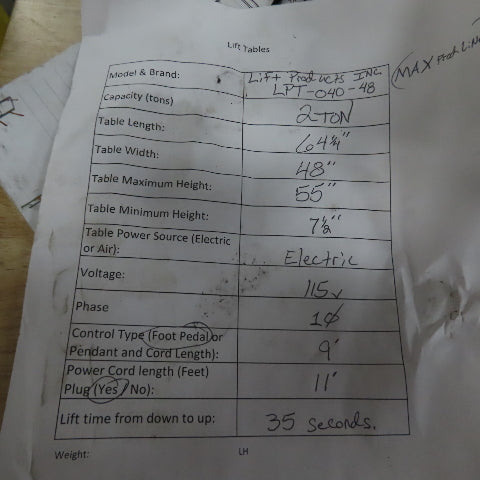 Lift Tables
Model & Brand: Lift Products INC
LPT-040-48
(MAX
Capacity (tons) 2-TON
Table Length: 64 1/4"
Table Width: 48"
Table Maximum Height: 55"
Table Minimum Height: 7 1/2"
Table Power Source (Electric
or Air): Electric
Voltage: 115v
Phase 1Ø
Control Type (Foot Pedal or
Pendant and Cord Length): 9'
Power Cord length (Feet)
Plug (Yes / No): 11'
Lift time from down to up: 35 seconds.
Weight: LH